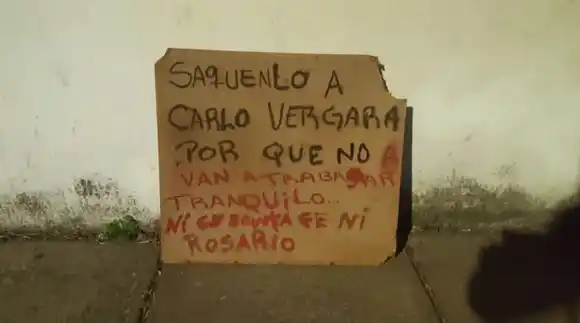 SAQUENLO A
CARLO VERGARA
POR QUE NO A
VAN A TRABAJAR
TRANQUILO...
Ni GE Ni
ROSARIO